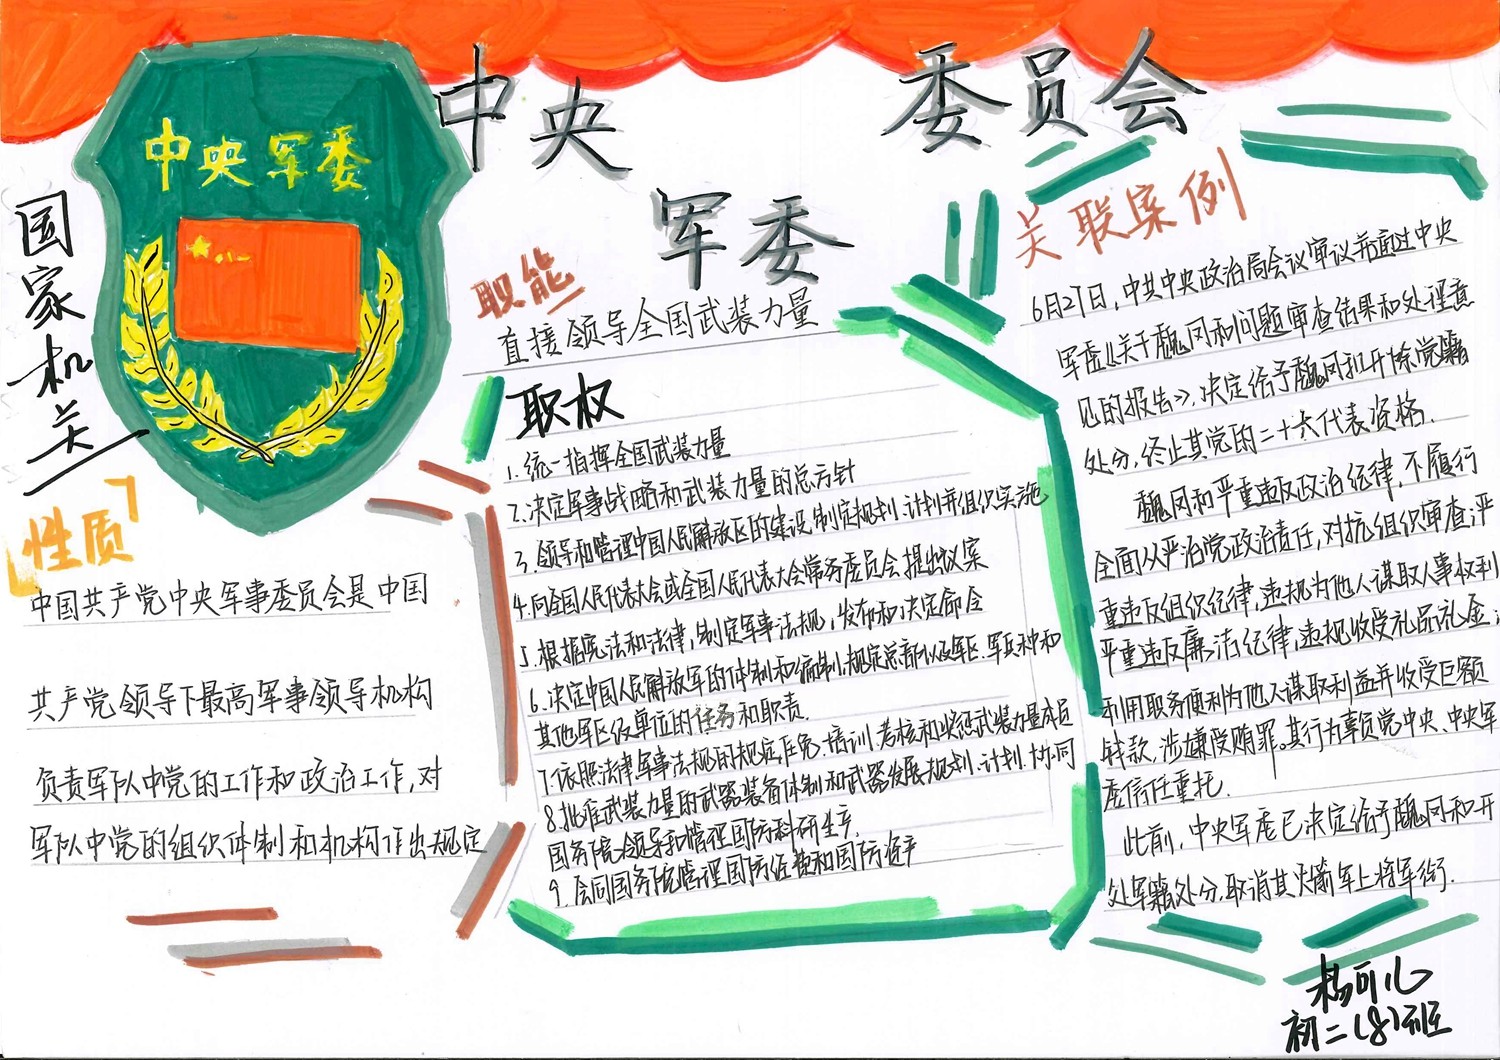 中央 委员会
军委
中央军委
国家机关
性质
中国共产党中央军事委员会是中国
共产党领导下最高军事领导机构
负责军队中党的工作和政治工作,对
军队中党的组织体制和机构作出规定
职能
直接领导全国武装力量
职权
1.统一指挥全国武装力量
2.决定军事战略和武装力量的总方针
3.领导和管理中国人民解放区的建设,制定规划、计划并组织实施
4.向全国人民代表大会或全国人民代表大会常务委员会提出议案
5.根据宪法和法律,制定军事法规,发布和决定命令
6.决定中国人民解放军的体制和编制,规定总部以及军区、军兵种和
其他军区级单位的任务和职责.
7.依照法律军事法规的规定任免、培训、考核和奖惩武装力量成员
8.批准武装力量的武器装备体制和武器发展规划、计划、协同
国务院领导和管理国防科研生产.
9.会同国务院管理国防经费和国防资产
关联案例
6月27日,中共中央政治局会议审议并通过中央
军委《关于魏凤和问题审查结果和处理意
见的报告》,决定给予魏凤和开除党籍
处分,终止其党的二十大代表资格.
魏凤和严重违反政治纪律,不履行
全面从严治党政治责任,对抗组织审查严
重违反组织纪律,违规为他人谋取人事权利
严重违反廉洁纪律,违规收受礼品礼金;
利用职务便利为他人谋取利益并收受巨额
钱款,涉嫌受贿罪。其行为辜负党中央、中央军
委信任重托.
此前,中央军委已决定给予魏凤和开
处军籍处分,取消其火箭军上将军衔.
杨可儿
初二(8)班